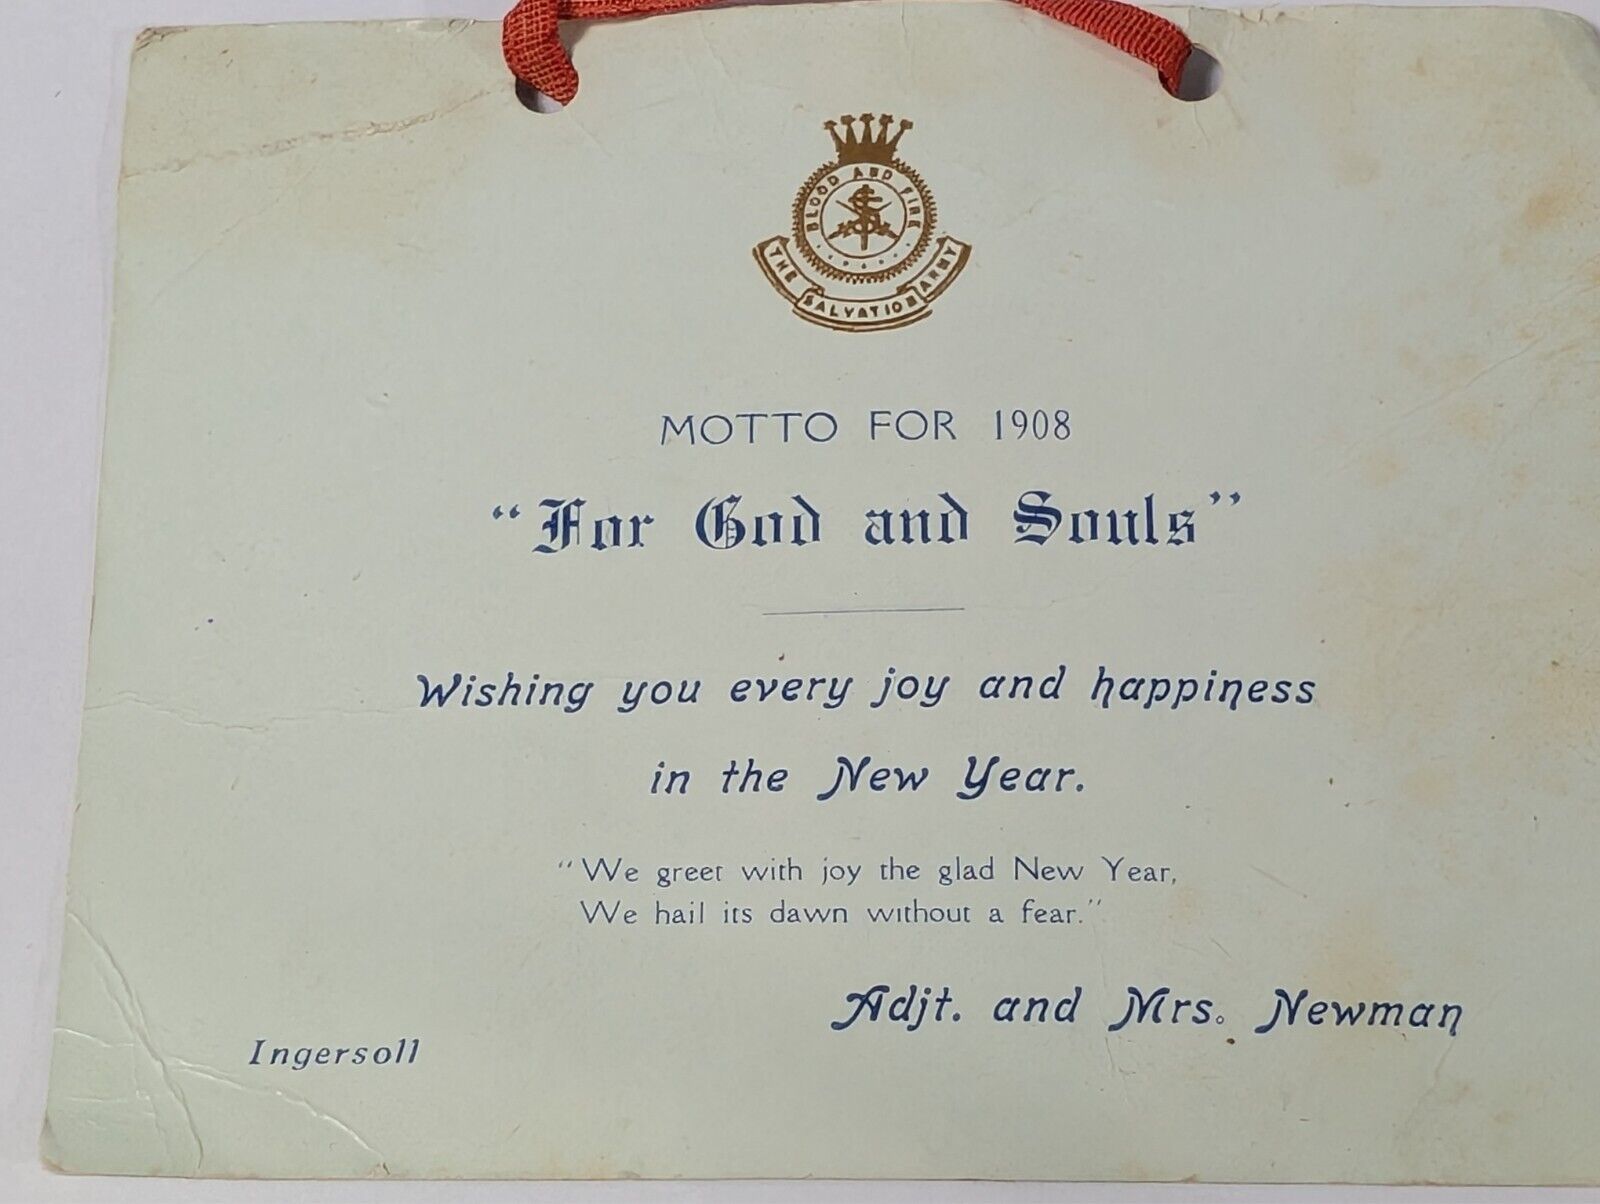 BLOOD AND FIRE
THE SALVATION ARMY
MOTTO FOR 1908
"For God and Souls"
Wishing you every joy and happiness
in the New Year.
"We greet with joy the glad New Year,
We hail its dawn without a fear."
Adjt. and Mrs. Newman
Ingersoll